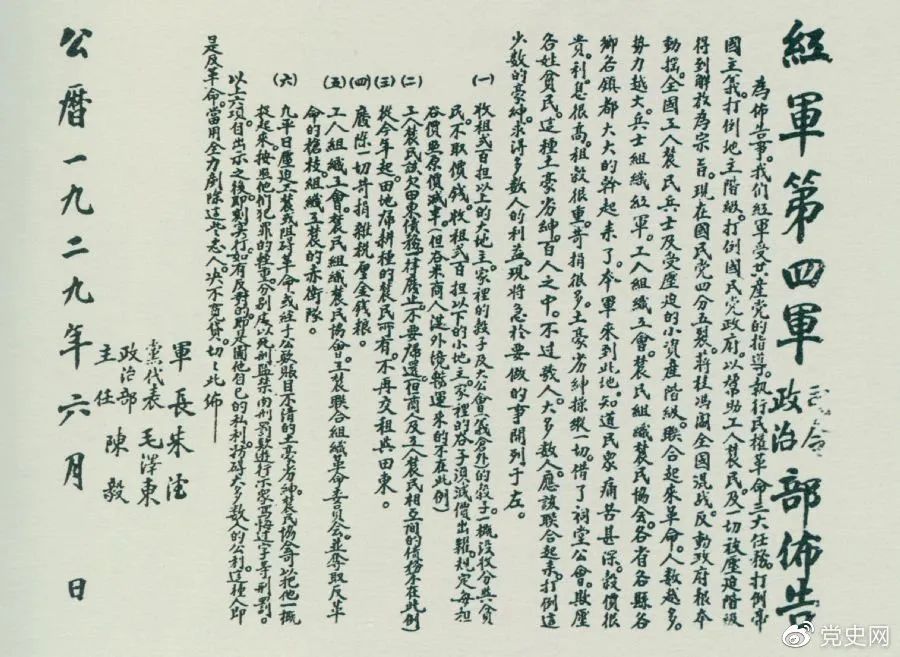 紅軍第四軍司令政治部佈告
為佈告事。我们紅軍受共產党的指導。执行民权革命三大任務。打倒帝
國主義。打倒地主階級。打倒國民党政府。以幫助工人農民及一切被壓迫階級
得到解放為宗旨。現在國民党四分五裂蔣桂馮閻全國混战。反動政府根本
動搖。全國工人農民兵士及受壓迫的小資產階級。联合起來革命。人数越多。
势力越大。兵士組織紅軍。工人組織工會。農民組織農民協会。各省各縣各
鄉各鎮都大大的幹起來了。本軍來到此地。知道民衆痛苦甚深。穀價很
貴。利息很高。租穀很重。苛捐很多。土豪劣紳操縱一切。借了祠堂公會。欺壓
各姓貧民。這種土豪劣紳。百人之中。不过数人。大多数人應該联合起來。打倒這
少数的豪紳。求得多数人的利益。現將急於要做的事開列于左。
(一) 收租弍百担以上的大地主。家裡的穀子及大公會(義倉外)的穀子一概没收分與貧
民。不取價钱。收租弍百担以下的小地主。家裡的谷子須減價出糶。規定每担
谷價照原價減半。(但谷米商人從外境販運来的不在此例)
(二) 工人農民該欠田東債務。一律廢止。不要歸還。(但商人及工人農民相互間的債務不在此例)
(三) 從今年起。田地歸耕種的農民所有。不再交租與田東。
(四) 廢除一切苛捐雜税厘金錢粮。
(五) 工人組織工會。農民組織農民協會。工農联合組織革命委員会。並奪取反革
命的槍枝。組織工農的赤衛隊。
(六) 凡平日壓迫工農或阻碍革命。或經手公欵賬目不清的土豪劣紳。農民協會可以把他一概
捉起來。按照他们犯罪的輕重。分別處以死刑監禁肉刑罰欵遊行示衆寫悔过字等刑罰。
以上六項自出示之後。即刻实行。如有反對的。即是圖他自己的私利。妨碍大多数人的公利。這種人即
是反革命。當用全力剷除這些惡人。决不寬貸。切切此佈
軍長朱德
党代表毛澤東
政治部主任陳毅
公曆一九二九年六月 日
党史网